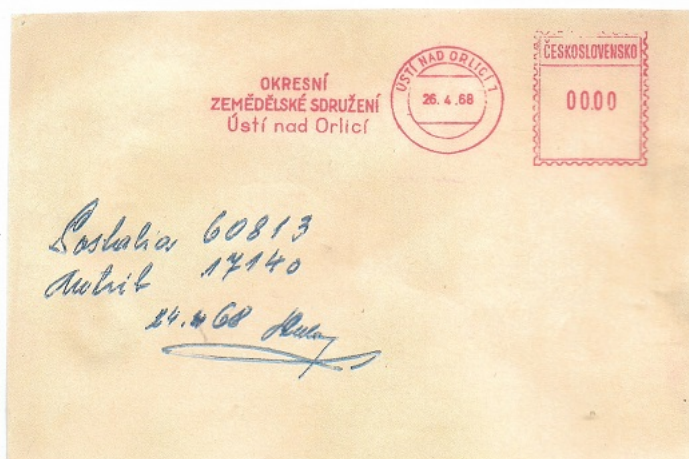 OKRESNÍ
ZEMĚDĚLSKÉ SDRUŽENÍ
Ústí nad Orlicí
ÚSTÍ NAD ORLICÍ 1
26.4.68
ČESKOSLOVENSKO
00.00
Postalia 60813
17140
24. 4 68